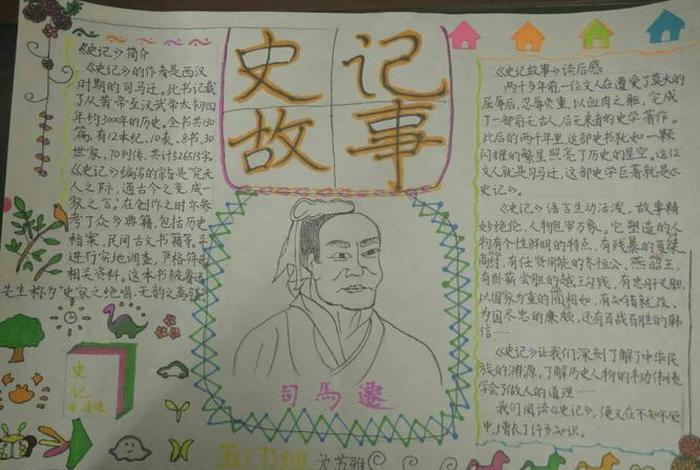 《史记》简介
《史记》的作者是西汉
时期的司马迁。比书记载
了从黄帝至汉武帝太初四
年约3000年的历史。全书共130
篇,有12本纪、10表、8书、30
世家、70列传,共计526515字。
《史记》编写的宗旨是究天
人之际,通古今之变,成一
家之言。在创作之时亦参
考了众多典籍,包括历史
档案、民间古文书籍等,
进行实地调查,严格筛选
相关资料。这本书被鲁迅
先生称为"史家之绝唱,无韵之离骚"
史记
故事
司馬遷
史
记
五(7)班
苏雅
《史记故事》读后感
两千多年前,一位文人在遭受了莫大的
屈辱后,忍辱负重,以血肉之躯,完成
了一部前无古人,后无来者的史学著作。
此后的两千年里,这部史书犹如一颗
闪耀的繁星照亮了历史的星空。这位
文人就是司马迁,这部史学巨著就是《史
记》。
《史记》语言生动活泼,故事精
妙绝伦,人物包罗万象。它塑造的人
物有个性鲜明的特点,有残暴的夏桀
商纣,有任贤用能的齐桓公、燕昭王,
有卧薪尝胆的越王勾践,有忠肝义胆,
以国家为重的蔺相如,有知错就改、
为国尽忠的廉颇,还有百战百胜的韩
信……
《史记》让我们深刻了解了中华民
族的渊源,了解历史人物的丰功伟绩
学会了做人的道理……
我们阅读《史记》,便又在不知不觉
中,增长了许多知识。